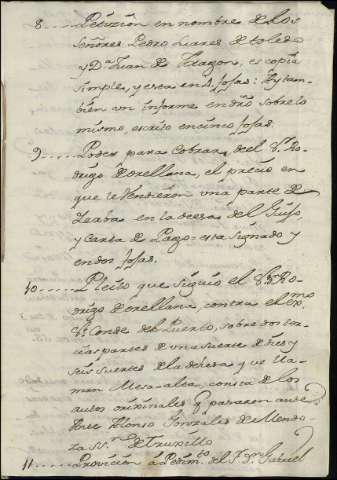 8.....Petizion en nombre de los
señores Pedro Suares de toledo
y Dª Juan de Aragon, es copia
simple, y esta en 4 fojas: Hay tam-
bien un informe en dro sobre lo
mismo, escrito en cinco fojas.
9.....Poder para Cobrar, del Sr Ro-
drigo de orellana, el precio en
que le Vendieron una parte de
Leabas en la deesa del Guijo,
y Carta de Pago: esta signado y
en dos fojas.
10.....Pleito que siguio el Sr Dn Ro-
drigo de orellana, contra el exmo
Sr Conde del Puerto, sobre dos ter-
cias partes de una suerte de dies y
seis suertes de la dehesa q se lla-
man Mesa-alta, consta de los
autos originales q pasaron ante
Alonso Gonzales de Mendo-
za de Truxillo
11.....Provicion á Pedimto del Gabriel